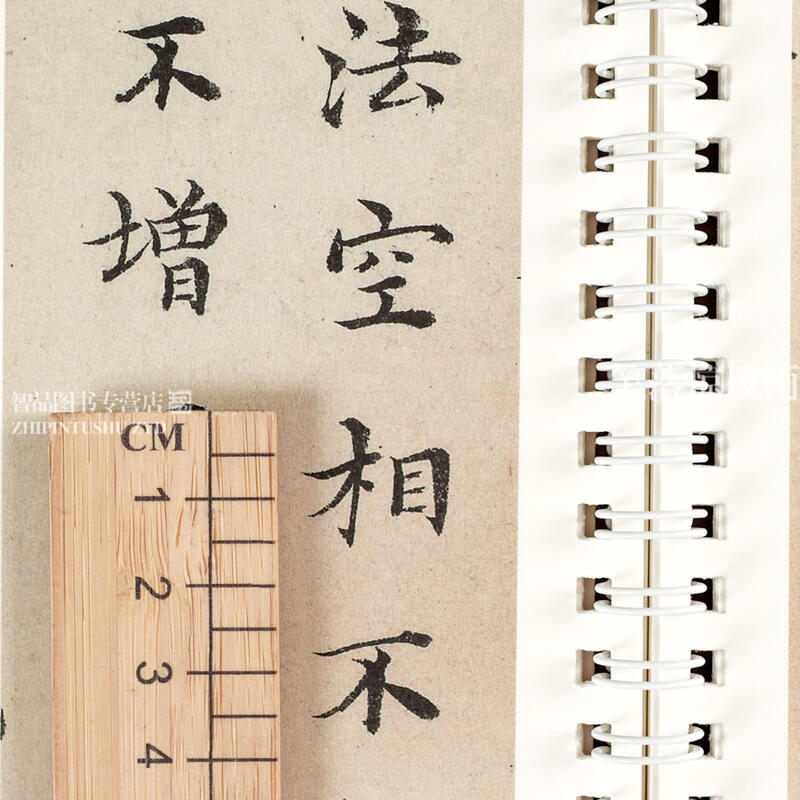 法空相不
不增
智品图书专营店
ZHIPINTUSHU
CM
1
2
3
4